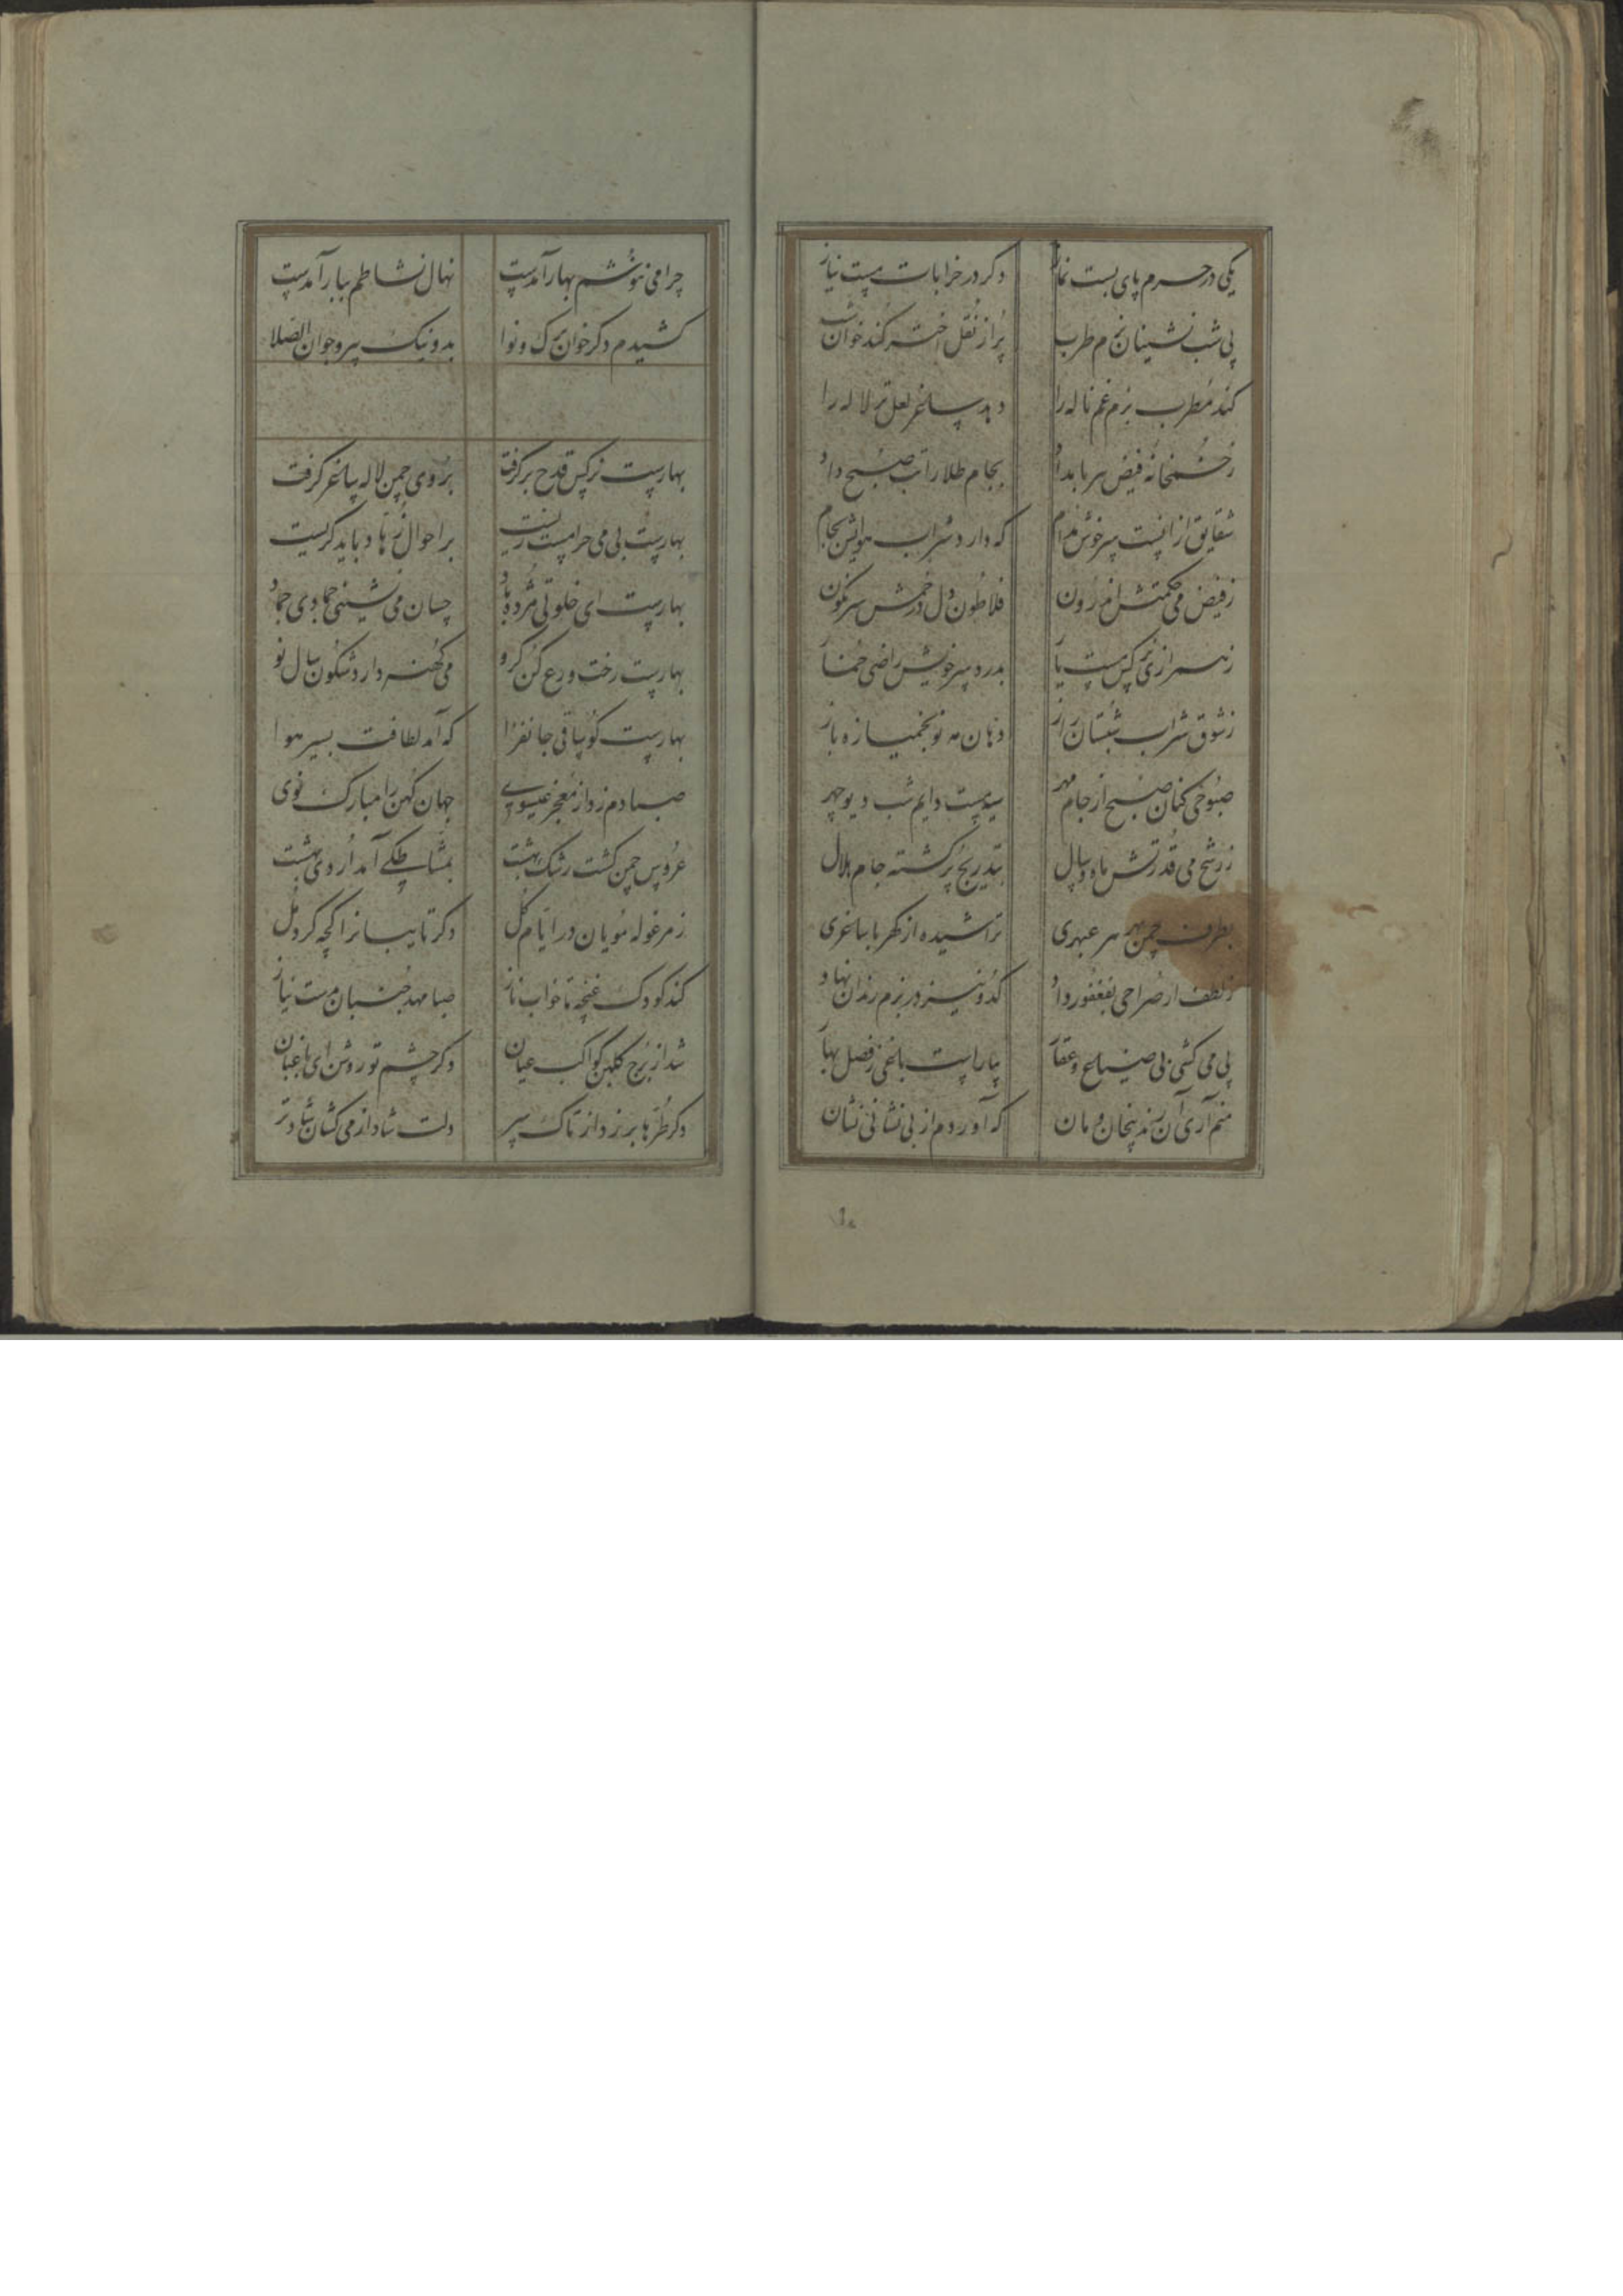 یکی در حرم پای بست نماز دکر در خرابات مست نیاز
پی شب نشینان بزم طرب پر از نقل اختر کند خوان شب
کند مطرب بزم غم ناله را دهد ساغر لعل تر لاله را
ز خمخانه فیض سرمایه داد بجام طلا راتب صبح داد
شقایق ازانست سرخوش مدام که دارد شراب هوایش بجام
ز فیض می حکمتش اندرون فلاطون دل در خمش سرنکون
نرکس مست یار بدرد سر خویش راضی خمار
ز شوق شراب شبستان راز دهان مه نو بخمیازه باز
صبوحی کنان صبح از جام مهر سیه مست دایم شب دیو چهر
ز رشح می قدرتش ماه و سال بتدریج پر کشته جام هلال
بطرف چمن بهر هر عبهری تراشیده از کهربا ساغری
ز لطف ار صراحی بفغفور داد کدو نیز در بزم رندان نهاد
پی می کشی بی ضیاع و عقار بیاراست باغی ز فصل بهار
منم آری آن رند بیخان و مان که آوردم از بی نشانی نشان
چرا می ننوشم بهار آمدست نهال نشاطم ببار آمدست
کشیدم دکر خوان برک و نوا بد و نیک پیر و جوان الصلا
بهارست نرکس قدح برکرفت بروی چمن لاله ساغر کرفت
بهارست بی می حرامست زیست بر احوال زهاد باید کریست
بهارست ای خلوتی مژده باد چسان می نشینی جمادی جماد
بهارست رخت ورع کن کرو می کهنه دارد شکون سال نو
بهارست کو ساقی جانفزا که آمد لطافت بسیر هوا
صبا دم زد از معجز عیسوی جهان کهن را مبارک نوی
عروس چمن کشت رشک بهشت بمشاطکی آمد اردی بهشت
ز مرغوله مویان در ایام کل دکر تایبانرا کچه کرد مل
کند کودک غنچه تا خواب ناز صبا مهد جنبان مست نیاز
شد از برج کلبن کواکب عیان دکر چشم تو روشن ای باغبان
دکر طره ها بر زد از تاک سر دلت شاد از می کشان شادتر